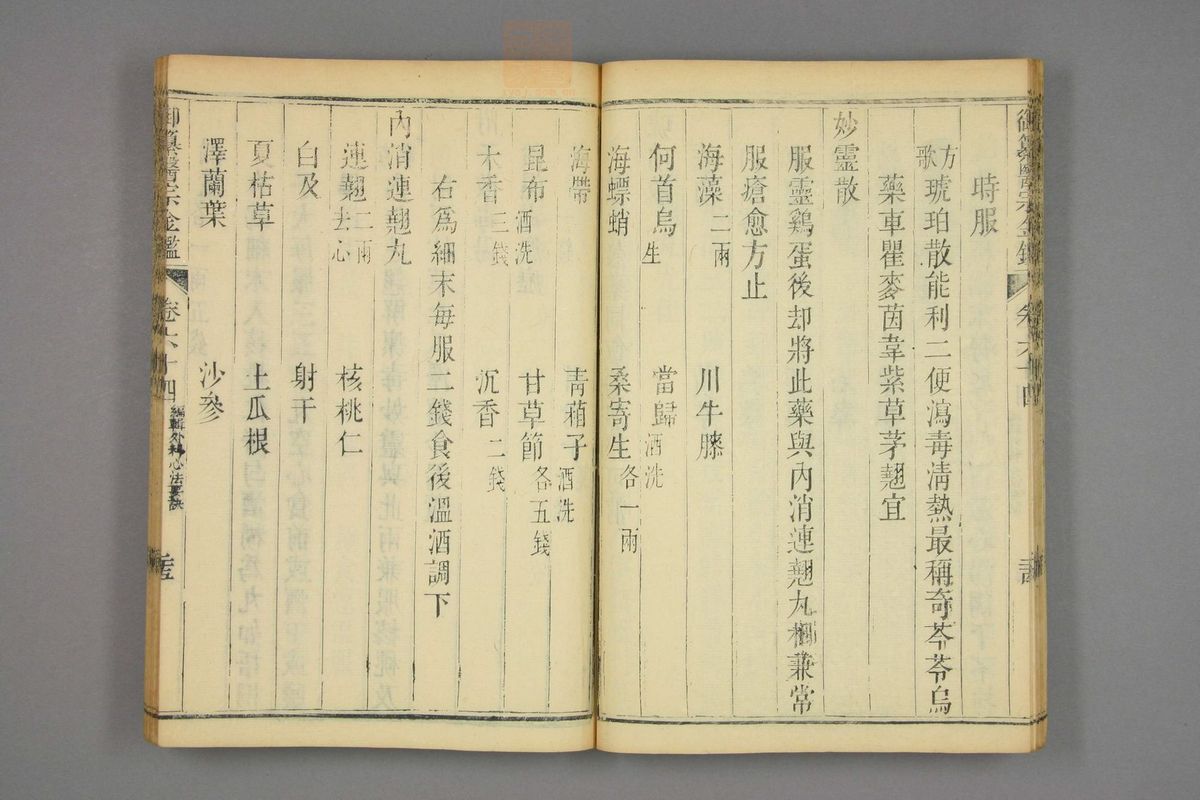 時服
方歌 琥珀散能利二便瀉毒清熱最稱奇苓苓烏
藥車瞿麥茵韋紫草茅翹宜
妙靈散
服靈鷄蛋後却將此藥與內消連翹丸相兼常
服瘡愈方止
海藻二兩 川牛膝
何首烏生 當歸酒洗
海螵蛸 桑寄生各一兩
海帶 青葙子酒洗
昆布酒洗 甘草節各五錢
木香三錢 沉香二錢
右爲細末每服二錢食後溫酒調下
內消連翹丸
連翹二兩去心 核桃仁
白及 射干
夏枯草 土瓜根
澤蘭葉 沙參
御纂醫宗金鑑 卷六十四 編輯外科心法要訣